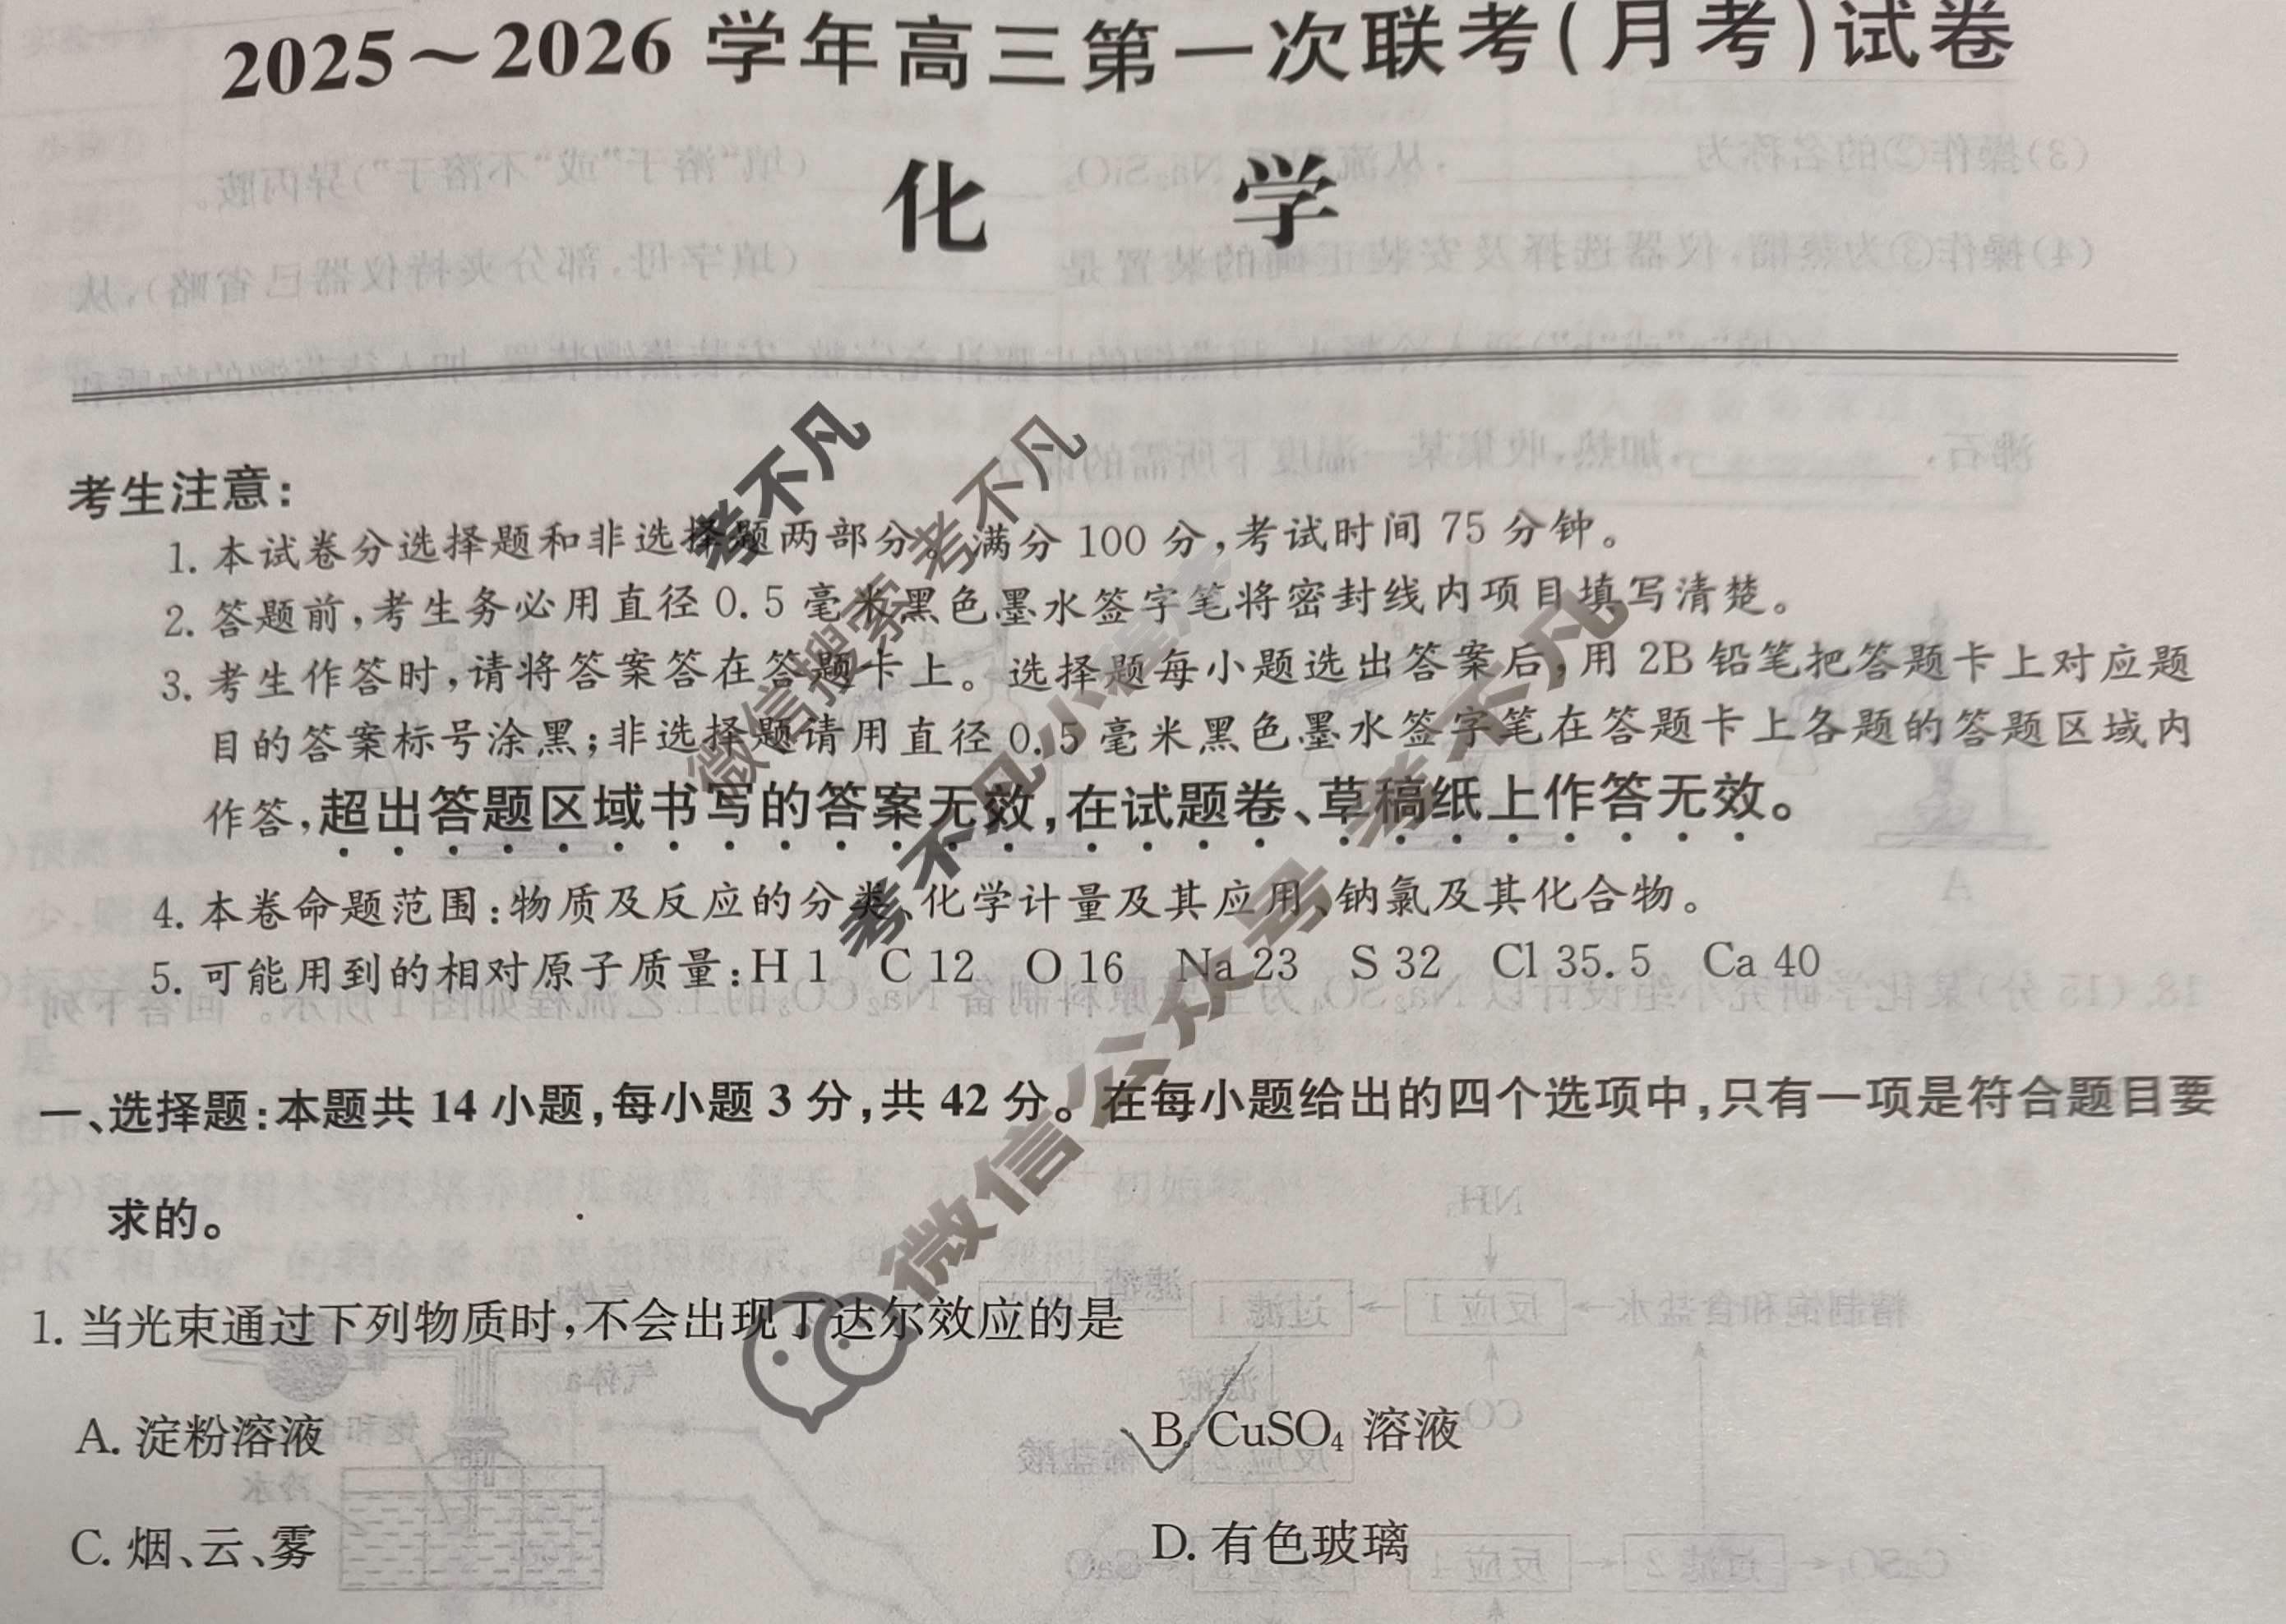 2025～2026 学年高三第一次联考(月考)试卷
化 学
考生注意:
1. 本试卷分选择题和非选择题两部分。满分 100 分,考试时间 75 分钟。
2. 答题前,考生务必用直径 0.5 毫米黑色墨水签字笔将密封线内项目填写清楚。
3. 考生作答时,请将答案答在答题卡上。选择题每小题选出答案后,用 2B 铅笔把答题卡上对应题
目的答案标号涂黑;非选择题请用直径 0.5 毫米黑色墨水签字笔在答题卡上各题的答题区域内
作答,超出答题区域书写的答案无效,在试题卷、草稿纸上作答无效。
4. 本卷命题范围:物质及反应的分类、化学计量及其应用、钠氯及其化合物。
5. 可能用到的相对原子质量:H 1 C 12 O 16 Na 23 S 32 Cl 35.5 Ca 40
一、选择题:本题共 14 小题,每小题 3 分,共 42 分。在每小题给出的四个选项中,只有一项是符合题目要
求的。
1. 当光束通过下列物质时,不会出现丁达尔效应的是
A. 淀粉溶液
B. CuSO₄ 溶液
C. 烟、云、雾
D. 有色玻璃
考不凡
微信搜索 考不凡
考不凡小程序
微信公众号 考不凡